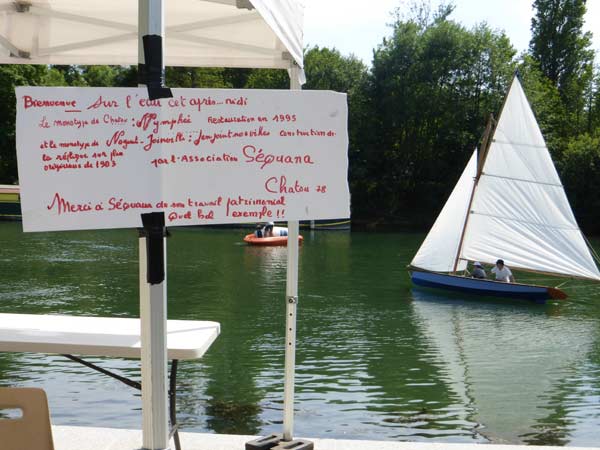 Bienvenue sur l'eau cet après-midi
Le monotype de Chatou : Nymphéa Restauration en 1995
et le monotype de Nogent-Joinville : construction de
la réplique sur plan
originaux de 1903 par l'Association Séquana
Chatou 78
Merci à Séquana de son travail patrimonial
Quel bel exemple !!